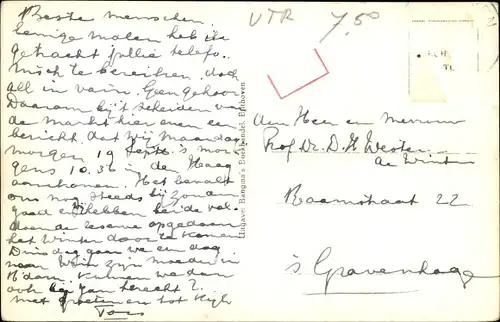 Beste menschen.
Eenige malen heb ik
getracht jullie telefo-
nisch te bereiken, doch
all in vain. Geen gehoor
Daarom bij 't scheiden van
de markt hier even een
bericht, dat wij Maandag
morgen 19 Sept. 's mor
gens 10.36 in den Haag
aankomen. Het bevalt
ons nog steeds bijzonder
goed en hebben beide vol-
doende reserve opgedaan
het Winter door te komen
Dinsdag gaan we een dag
naar zijn moeder in
R'dam. Kunnen we dan
ook bij Jan terecht?
met groeten en tot
Toos
VTR 7,50
Uitgave Hangma's Boekhandel, Eefhoven
den Heer en Mevrouw
Prof. Dr. D. H. Wester
de Winter
Raamstraat 22
's Gravenhage